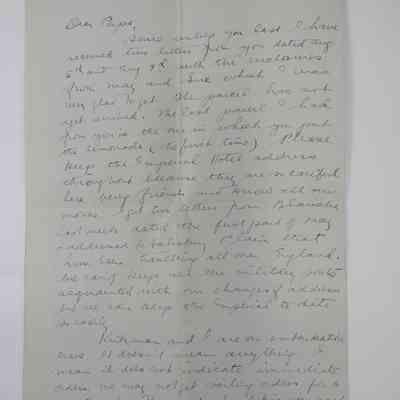 Dear Papa,
Since writing you last I have
received two letters from you dated Aug
6th and Aug 9th with the enclosures
from May and Sue which I was
very glad to get. The parcel has not
yet arrived. The last parcel I had
from you is the one in which you put
the lemonade (the first time). Please
keep the Imperial Hotel address
throughout because they are so careful
here being friends and know all our
moves. I got two letters from Blanche
last week dated the first part of May
addressed to Salisbury Plain that
have been travelling all over England.
We can't keep all the military posts
acquainted with our changes of address
but we can keep the Empire to date
so easily.
and I are on embarkation
leave. It doesn't mean anything. I
mean it does not indicate immediate
orders. We may not get sailing orders for a